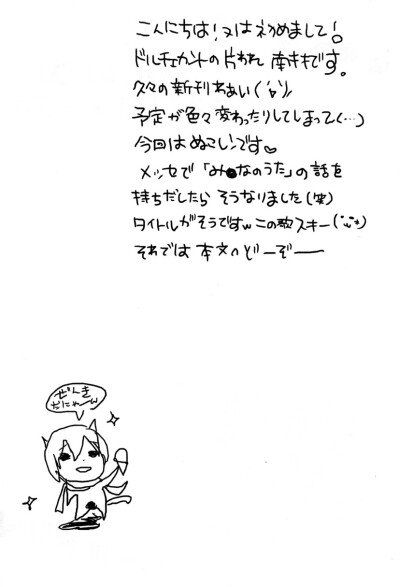 こんにちは！又ははじめまして！
ドルチェカントの片われ 南キキです。
久々の新刊わぁい('▽')ﾉ
予定が色々変わったりしてしまって(…)
今回はぬこいンです♡
メッセで「み●なのうた」の話を
持ちだしたら そうなりました(笑)
タイトルがそうですｗこの歌スキー(
それでは 本文へどーぞー
ぜんき
だにゃーん